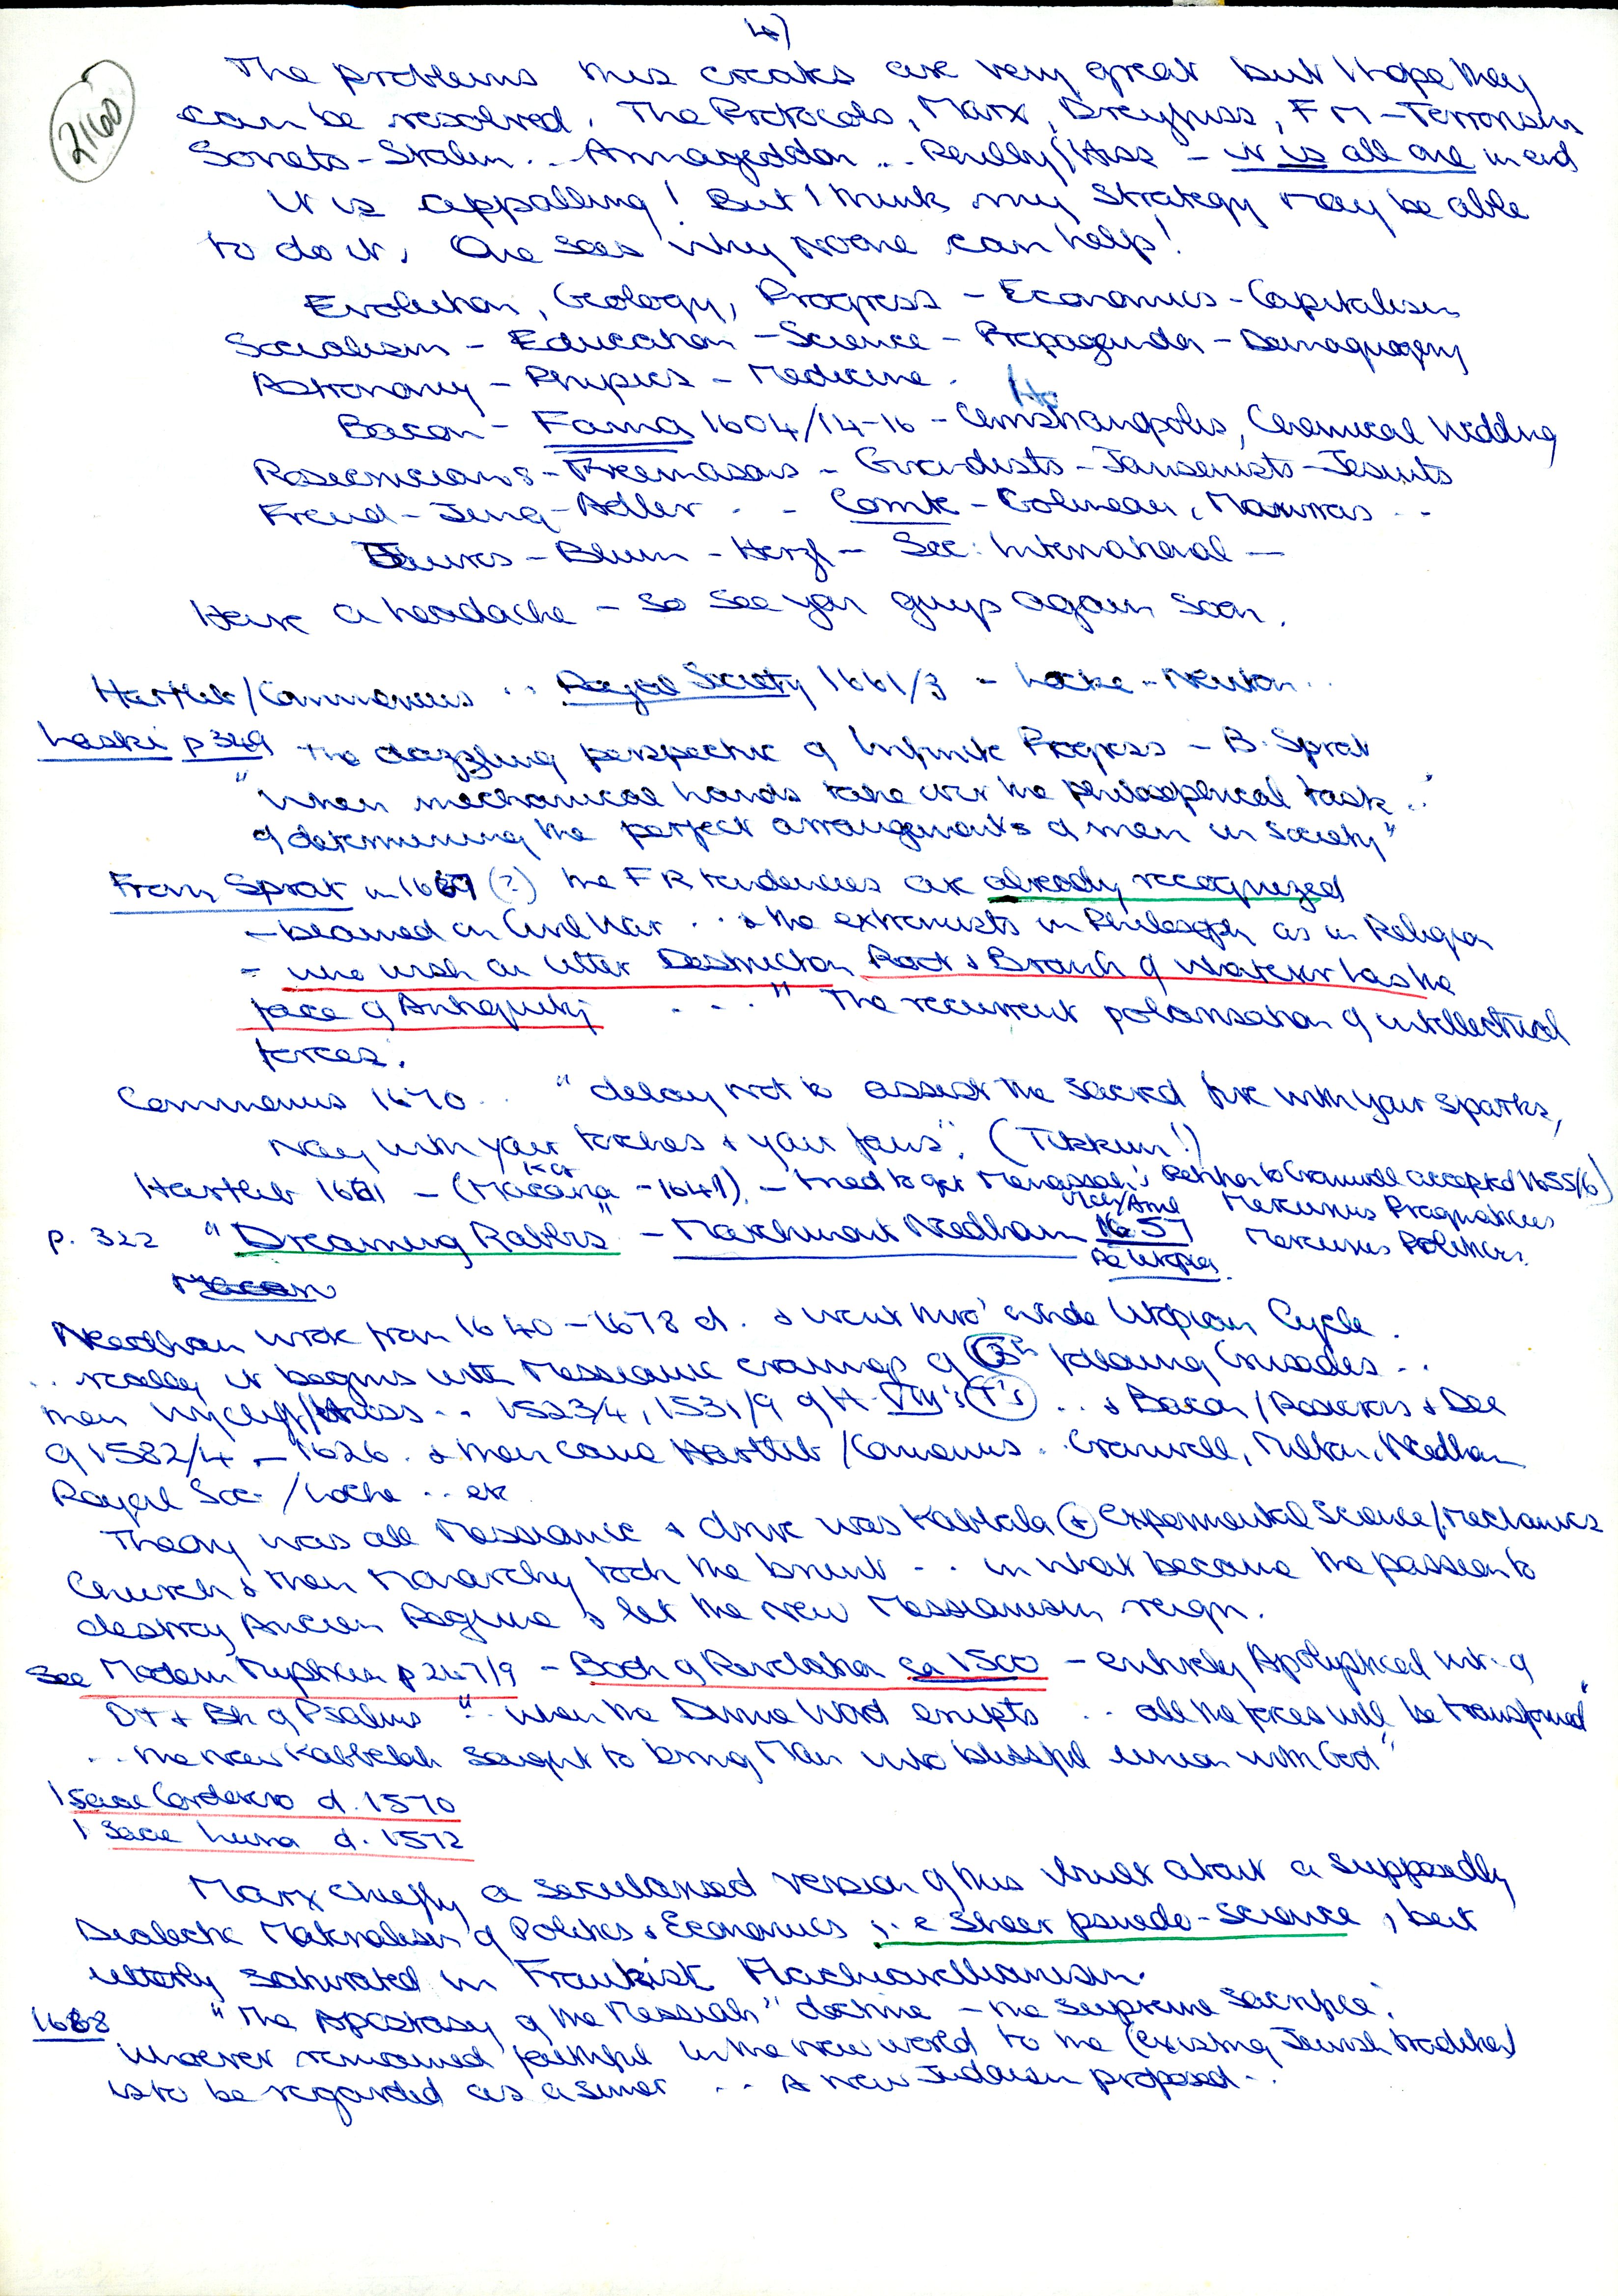 4)
2160
The problems this creates are very great but I hope they
can be resolved. The Protocols, Marx, Dreyfuss, F M - Terrorism
Soviets - Stalin .. Armageddon .. Reilly/Hiss - it is all one in end
It is appalling! But I think my strategy may be able
to do it. One sees why noone can help!
Evolution, Geology, Progress - Economics - Capitalism
Socialism - Education - Science - Propaganda - Demagoguery
Astronomy - Physics - Medicine.
Bacon - Fama 1604/14-16 - Christianopolis, Chemical Wedding
Rosecrucians - Freemasons - - Jansenists - Jesuits
Freud - Jung - Adler .. - Comte - Gobineau, Maurras ..
Jaures - Blum - Herzl - Sec: International -
Have a headache - so see you guys again soon.
Hartlib/Commenius .. Royal Society 1661/3 - Locke - Newton ..
Laski p 349 The dazzling perspective of Infinite Progress - B. Sprat
"When mechanical hands take over the philosophical task ..
of determining the perfect arrangements of men in society"
From Sprat in 1667 (?) the FR tendencies are already recognized
- blamed on Civil War .. & the extremists in Philosophy as in Religion
- who wish an Utter Destruction Root & Branch of whatever has the
face of Antiquity ..." The recurrent polarisation of intellectual
forces.
Commenius 1670 .. "delay not to assist the sacred fire with your sparks,
Nay with your torches & your fans". (Tikkun!)
Hartlib - (Macaria - 1641) - tried to get Manasseh's Petition to Cromwell accepted 1655/6)
p. 322 "Dreaming Rabbis" - Marchmont Needham 1657 Mercurius Pragmaticus
Re Utopia Mercurius Politicus.
Needham wrote from 1640 - 1678 d. & went thro' whole Utopian Cycle.
.. really it begins with Messianic cravings of following Crusades ..
then Wycliff/Huss .. 1523/4, 1531/9 of H. VIII's (T's) .. & Bacon/Rosicrus & Dee
of 1582/4 - 1626. & then came Hartlib/Comenius .. Cromwell, Milton, Needham
Royal Soc. / Locke .. etc
Theory was all Messianic & drive was Kabbala (+) Experimental Science/Mechanics
Church & then Monarchy took the brunt .. in what became the passion to
destroy Ancien Regime & let the New Messianism reign.
See Modern Mysticism p 247/9 - Book of Revelation ca 1500 - entirely Apolyptical int. of
OT & Bk of Psalms "when the Divine Word erupts .. all the forces will be transformed"
.. the new Kabbelah sought to bring Man into blissful union with God"
Isaac Cordovero d. 1570
Isaac Luria d. 1572
Marx chiefly a secularised version of this built about a supposedly
Dialectic Materialism of Politics & Economics i.e sheer psuedo-science, but
utterly saturated in Frankist Machiavellianism.
1688 "The Apostasy of the Messiah" doctrine - the supreme sacrifice.
Whoever remained faithful in the new world to the (existing Jewish tradition)
is to be regarded as a sinner .. A new Judaism proposed ..